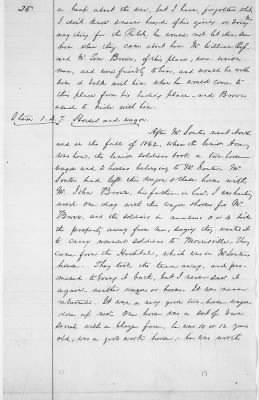 25
a back about the war, but I have forgotten what
I don't know & never heard of his giving or doing
any thing for the Rebels, he would not let them have
him when they came about him Mr William Ref
and Mr Tom Brown, of this place, were union
men, and were friendly to him, and would be with
him & talk with him when he would come to
this place from his hiding place and Brown
used to hide with him.
Claim 1. & 7 Horses and wagon.
After Mr Souter went North
and in the fall of 1862, when the Union Army
was here, the Union Soldiers took a two horse
wagon and 2 horses belonging to Mr Souter. Mr
Souter had left this wagon & these horses with
Mr. John Brown, his father in law. I was hauling
wood one day with this wagon & horses for Mr
Brown, and the soldiers in numbers 3 or 4 took
the property away from me, saying they wanted it
to carry wounded soldiers to Morrisville. They
came from the Hospital, which was in Mr Souters
house. They took the team away, and pro-
mised to bring it back, but I never saw it
again neither wagon or horses. It was never
returned. It was a very good two-horse wagon
done up next. One horse was a sort of
Sorrel with a blaze face, he was 10 or 12 years
old, was a good work horse - he was worth